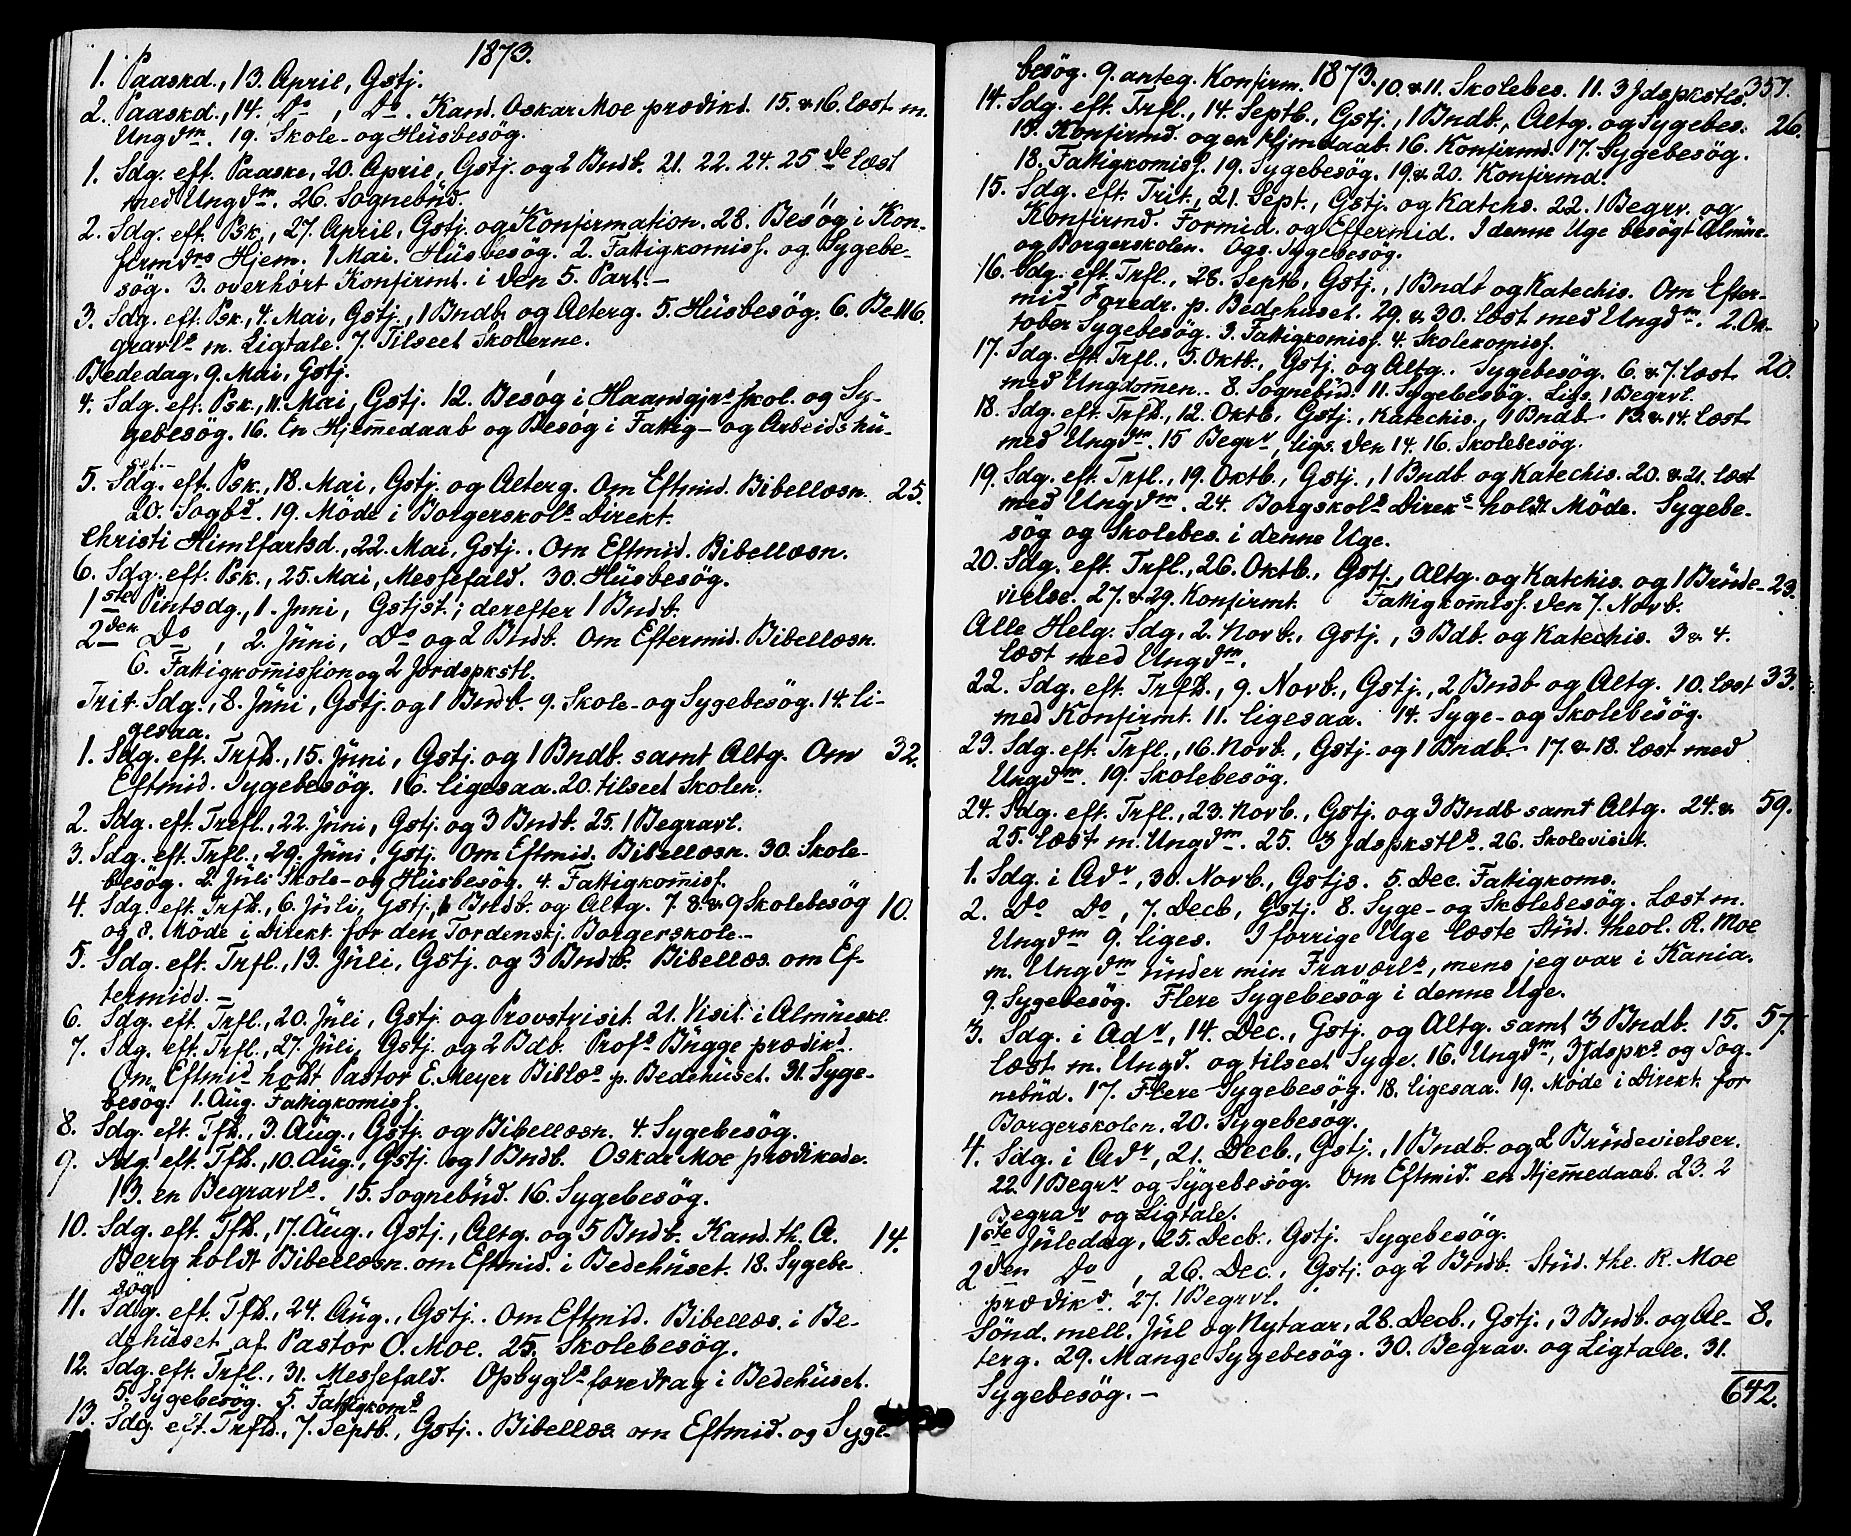 1873.
1. Paaskd., 13. April, Gstj.
2. Paaskd., 14. Do, Do. Kand. Oskar Moe prædikd. 15. & 16. læst m.
Ungdm. 19. Skole- og Hüsbesøg.
1. Sdg. eft. Paaske, 20. April, Gstj. og 2 Bndb. 21. 22. 24. 25de læst
med Ungdm. 26. Sognebüd.
2. Sdg. eft. Psk., 27. April, Gstj. og Konfirmation. 28. Besøg i Kon-
firmdrs Hjem. 1 Mai. Hüsbesøg. 2. Fattigkomiss. og Sygebe-
søg. 3. overhørt Konfirmt. i den 5. Part. -
3. Sdg. eft. Psk., 4. Mai, Gstj., 1 Bndb. og Alterg. 5. Hüsbesøg. 6. Be- 116.
gravls m. Ligtale. 7. Tilseet Skolerne.
Bededag, 9. Mai, Gstj.
4. Sdg. eft. Psk., 11. Mai, Gstj. 12. Besøg i Haandgjrs Skol. og Sy-
gebesøg. 16. En Hjem̅edaab og Besøg i Fattig- og Arbeidshü-
set. -
5. Sdg. eft. Psk., 18. Mai, Gstj. og Alterg. Om Eftmid. Bibellæsn. 25.
20. Sogbd. 19. Møde i Borgerskols Direkt.
Christi Himlfartsd., 22. Mai, Gstj. Om Eftmid. Bibellæsn.
6. Sdg. eft. Psk., 25. Mai, Messefald. 30. Hüsbesøg.
1ste Pintsdg., 1. Juni, Gstjst.; derefter 1 Bndb.
2den Do, 2. Jüni, Do og 2 Bndb. Om Eftermid. Bibellæsn.
6. Fattigkom̅ission og 2 Jordspkstl.
Trit. Sdg., 8. Jüni, Gstj. og 1 Bndb. 9. Skole- og Sygebesøg. 14. li-
gesaa.
1. Sdg. eft. Trfld., 15. Jüni, Gstj. og 1 Bndb. samt Altg. Om 32.
Eftmid. Sygebesøg. 16. ligesaa. 20. tilseet Skolen.
2. Sdg. eft. Trefl., 22. Jüni, Gstj. og 3 Bndb. 25. 1 Begravl.
3. Sdg. eft. Trfl., 29. Jüni, Gstj. Om Eftmid. Bibellæsn. 30. Skole-
besøg. 2. Jüli Skole- og Hüsbesøg. 4. Fattigkom̅iss.
4. Sdg. eft. Trfld., 6. Jüli, Gstj., Bndb. og Altg. 7. 8. & 9 Skolebesøg 10.
og 8. Møde i Direkt. for den Tordenskj. Borgerskole. -
5. Sdg. eft. Trfl., 13. Jüli, Gstj. og 3 Bndb. Bibellæs. om Ef-
termidd. -
6. Sdg. eft. Trfl., 20. Jüli, Gstj. og Provstvisit. 21. Visit. i Almüneskl.
7. Sdg. eft. Trfl., 27. Jüli, Gstj. og 2 Bdb. Profs Bügge prædikd.
Om Eftmid holdt Pastor E. Meyer Biblæs p. Bedehüset. 31. Syge-
besøg. 1. Aug. Fattigkomiss.
8. Sdg. eft. Tfld., 3. Aüg., Gstj. og Bibellæsn. 4. Sygebesøg.
9. Sdg. eft. Tfld., 10. Aüg., Gstj. og 1 Bndb. Oskar Moe prædikede.
13. en Begravls. 15. Sognebüd. 16. Sygebesøg.
10. Sdg. eft. Tfld., 17. Aüg., Gstj., Altg. og 5 Bndb. Kand. th. A. 14.
Berg holdt Bibellæsn. om Eftmid. i Bedehüset. 18. Sygebe-
søg.
11. Sdg. eft. Tfld., 24. Aüg., Gstj. Om Eftmid. Bibellæs. i Be-
dehüset af Pastor O. Moe. 25. Skolebesøg.
12. Sdg. eft. Trfl., 31. Messefald. Opbygls foredrag i Bedehüset.
5. Sygebesøg. 5. Fattigkoms
13. Sdg. eft. Trfld., 7. Septb., Gstj. Bibellæs om Eftmid. og Syge-
1873. 357.
besøg. 9. anteg. Konfirm. 10. & 11. Skolebes. 11. 3 Jdspkstls.
14. Sdg. eft. Trfl., 14. Septb., Gstj., 1 Bndb., Altg. og Sygebes. 26.
15. Konfirmd. og en Hjmdaab. 16. Konfirmd. 17. Sygebesøg.
18. Fattigkomiss. 19. Sygebesøg. 19. & 20. Konfirmd.
15. Sdg. eft. Trit., 21. Sept., Gstj. og Katchs. 22. 1 Begrv. og
Konfirmd. Formid. og Eftermid. I denne Uge besøgt Almüne-
og Borgerskolen. Ogs. Sygebesøg.
16. Sdg. eft. Trfl., 28. Septb, Gstj., 1 Bndb og Katechis. Om Efter-
mid Foredr. p. Bedehuset. 29. & 30. læst med Ungdm. 2. Ok-
tober Sygebesøg. 3. Fattigkomiss. 4. Skolekomiss.
17. Sdg. eft. Trfl., 5. Oktb., Gstj. og Altg. Sygebesøg. 6. & 7. læst 20.
med Ungdomen. 8. Sognebüd. 11. Sygebesøg. Ligs. 1 Begrvl.
18. Sdg. eft. Trfld., 12. Oktb, Gstj., Katechis., 1 Bndb. 13. & 14. læst
med Ungdm. 15 Begrv, ligs. den 14. 16. Skolebesøg.
19. Sdg. eft. Trfl., 19. Oktb., Gstj., 1 Bndb. og Katechis. 20. & 21. læst
med Ungdm. 24. Borgskols Direks holdt Møde. Sygebe-
søg og Skolebes. i denne Uge.
20. Sdg. eft. Trfl., 26. Oktb., Gstj., Altg. og Katchis. og 1 Brüde- 23.
vielse. 27. & 29. Konfirmt. Fattigkom̅iss. den 7. Novb.
Alle Helg. Sdg., 2. Novb., Gstj., 3 Bdb. og Katechis. 3 & 4.
læst med Ungdm.
22. Sdg. eft. Trfld., 9. Novb., Gstj., 2 Bndb og Altg. 10. læst 33.
med Konfirmt. 11. ligesaa. 14. Syge- og Skolebesøg.
23. Sdg. eft. Trfl., 16. Novb., Gstj. og 1 Bndb. 17. & 18. læst med
Ungdm. 19. Skolebesøg.
24. Sdg. eft. Trfl., 23. Novb., Gstj. og 3 Bndb samt Altg. 24. & 59.
25. læst m. Ungdm. 25. 3 Jdspkstls. 26. Skolevisit.
1. Sdg. i Adv, 30. Novb., Gstjs. 5. Dec. Fattigkoms.
2. Do Do, 7. Decb, Gstj. 8. Syge- og Skolebesøg. Læst m.
Ungdm 9. liges. I forrige Uge læste Stüd. theol. R. Moe
m. Ungdm ünder min Fraværls, mens jeg var i Kania.
9. Sygebesøg. Flere Sygebesøg i denne Uge.
3. Sdg. i Adv, 14. Dec., Gstj. og Altg. samt 3 Bndb. 15. 57.
læst m. Ungd. og tilseet Syge. 16. Ungdm, 3 Jdspks og Sog-
nebüd. 17. Flere Sygebesøg. 18. ligesaa. 19. Møde i Direkt. for
Borgerskolen. 20. Sygebesøg.
4. Sdg. i Adv, 21. Decb., Gstj., 1 Bndb. og 2 Brüdevielser.
22. 1 Begrv og Sygebesøg. Om Eftmid. en Hjem̅edaab. 23. 2
Begrav og Ligtale.
1ste Jüledag, 25. Decb., Gstj. Sygebesøg.
2den Do, 26. Dec., Gstj. og 2 Bndb. Stüd. the. R. Moe
prædikd. 27. 1 Begrvl.
Sønd. mell. Jül og Nytaar, 28. Decb., Gstj., 3 Bndb. og Al- 8.
terg. 29. Mange Sygebesøg. 30. Begrav. og Ligtale. 31.
Sygebesøg. -
642.